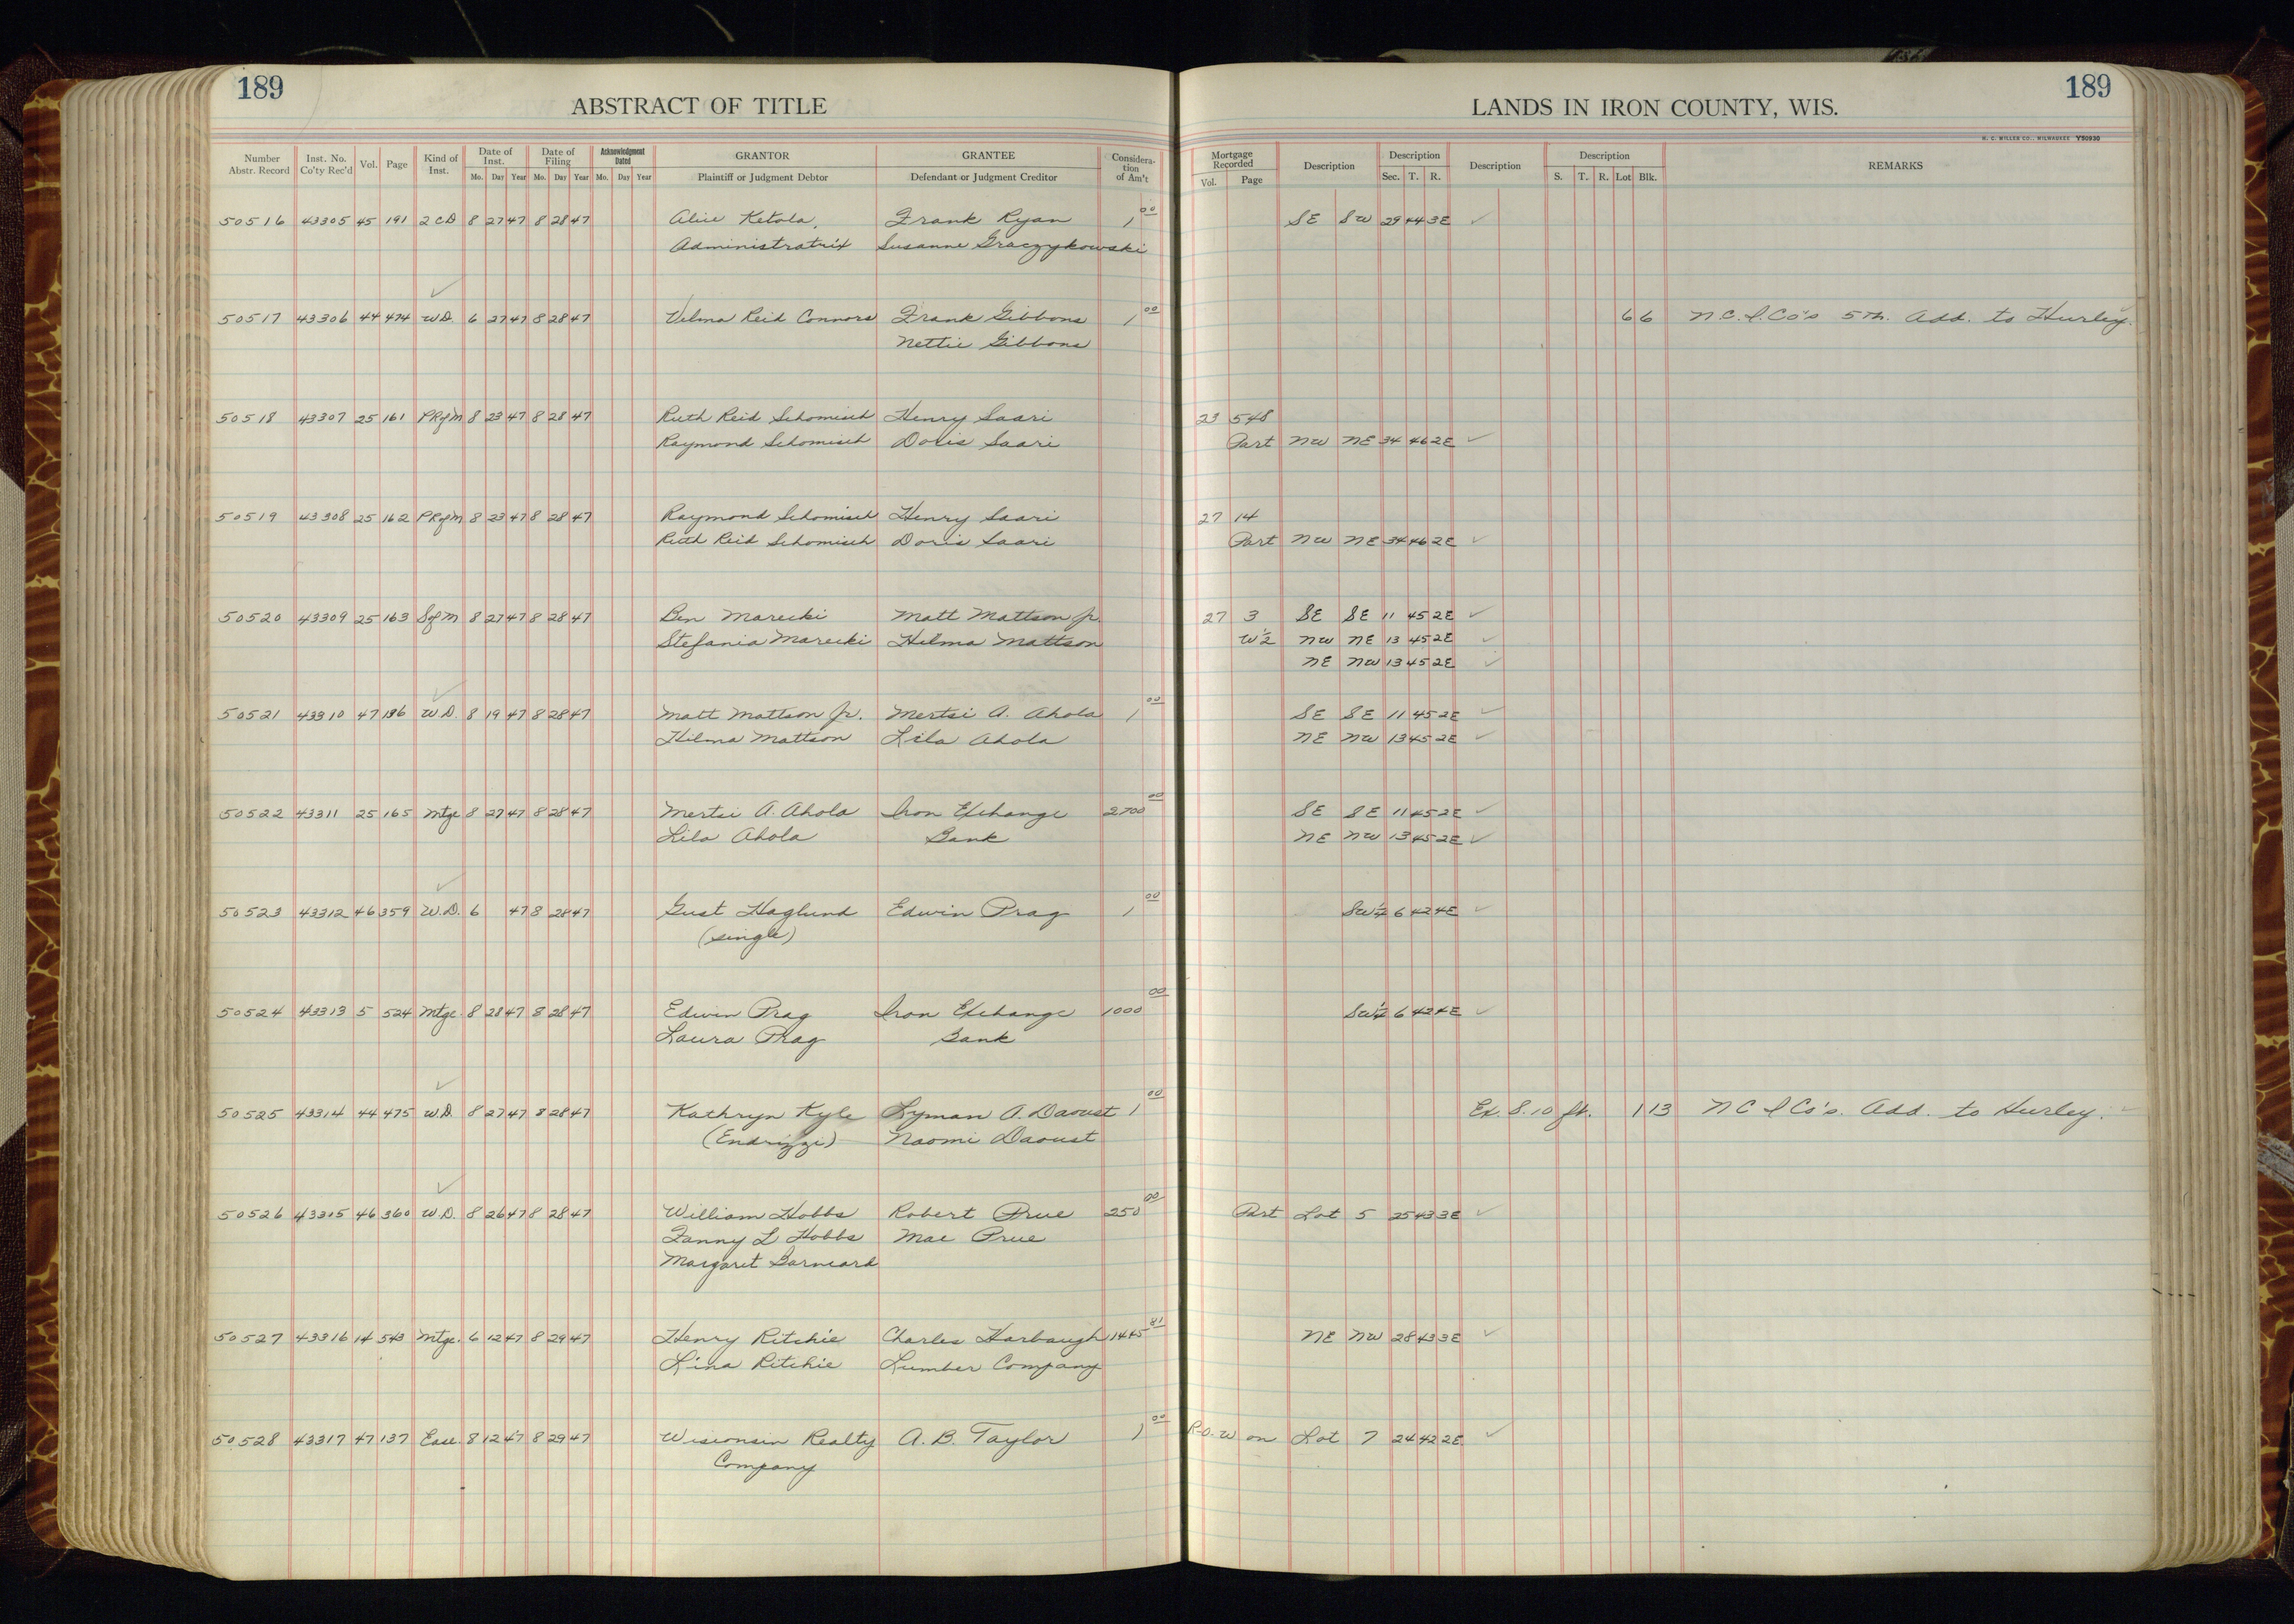 189
ABSTRACT OF TITLE
LANDS IN IRON COUNTY, WIS.
189
H. C. MILLER CO., MILWAUKEE V50930
Number Abstr. Record Inst. No. Co'ty Rec'd Vol. Page Kind of Inst. Date of Inst. Mo. Day Year Date of Filing Mo. Day Year Acknowledgment Dated Mo. Day Year GRANTOR Plaintiff or Judgment Debtor GRANTEE Defendant or Judgment Creditor Consideration of Am't Mortgage Recorded Vol. Page Description Description Sec. T. R. Description Description S. T. R. Lot Blk. REMARKS
50516 43305 45 191 2CD 8 27 47 8 28 47 Alice Ketola, Frank Ryan 1 00 SE SW 29 44 3E ✓
Administratrix Susanne Graczykowski
✓
50517 43306 44 474 W.D. 6 27 47 8 28 47 Velma Reid Connors Frank Gibbons 1 00 6 6 N.C.I.Co's 5th. Add. to Hurley.
Nettie Gibbons
50518 43307 25 161 PRofM 8 23 47 8 28 47 Ruth Reid Schomisch Henry Saari 23 548
Raymond Schomisch Doris Saari Part NW NE 34 46 2E ✓
50519 43308 25 162 PRofM 8 23 47 8 28 47 Raymond Schomisch Henry Saari 27 14
Ruth Reid Schomisch Doris Saari Part NW NE 34 46 2E ✓
50520 43309 25 163 SofM 8 27 47 8 28 47 Ben Marecki Matt Mattson Jr. 27 3 SE SE 11 45 2E ✓
Stefania Marecki Hilma Mattson W½ NW NE 13 45 2E ✓
NE NW 13 45 2E ✓
✓
50521 43310 47 136 W.D. 8 19 47 8 28 47 Matt Mattson Jr. Mertsi A. Ahola 1 00 SE SE 11 45 2E ✓
Hilma Mattson Lila Ahola NE NW 13 45 2E ✓
50522 43311 25 165 Mtge 8 27 47 8 28 47 Mertsi A. Ahola Iron Exchange 2700 00 SE SE 11 45 2E ✓
Lila Ahola Bank NE NW 13 45 2E ✓
✓
50523 43312 46 359 W.D. 6 47 8 28 47 Gust Haglund Edwin Prag 1 00 SW¼ 6 42 4E ✓
(single)
50524 43313 5 524 Mtge. 8 28 47 8 28 47 Edwin Prag Iron Exchange 1000 00 SW¼ 6 42 4E ✓
Laura Prag Bank
✓
50525 43314 44 475 W.D. 8 27 47 8 28 47 Kathryn Kyle Lyman A. Daoust 1 00 Ex. S. 10 ft. 1 13 N C I Co's. Add. to Hurley. ✓
(Endrizzi) Naomi Daoust
✓
50526 43315 46 360 W.D. 8 26 47 8 28 47 William Hobbs Robert Prue 250 00 Part Lot 5 25 43 3E ✓
Fanny L Hobbs Mae Prue
Margaret Barneard
50527 43316 14 543 Mtge. 6 12 47 8 29 47 Henry Ritchie Charles Harbaugh 1445 81 NE NW 28 43 3E ✓
Lina Ritchie Lumber Company
50528 43317 47 137 Ease. 8 12 47 8 29 47 Wisconsin Realty A. B. Taylor 1 00 R.O.W on Lot 7 24 42 2E ✓
Company